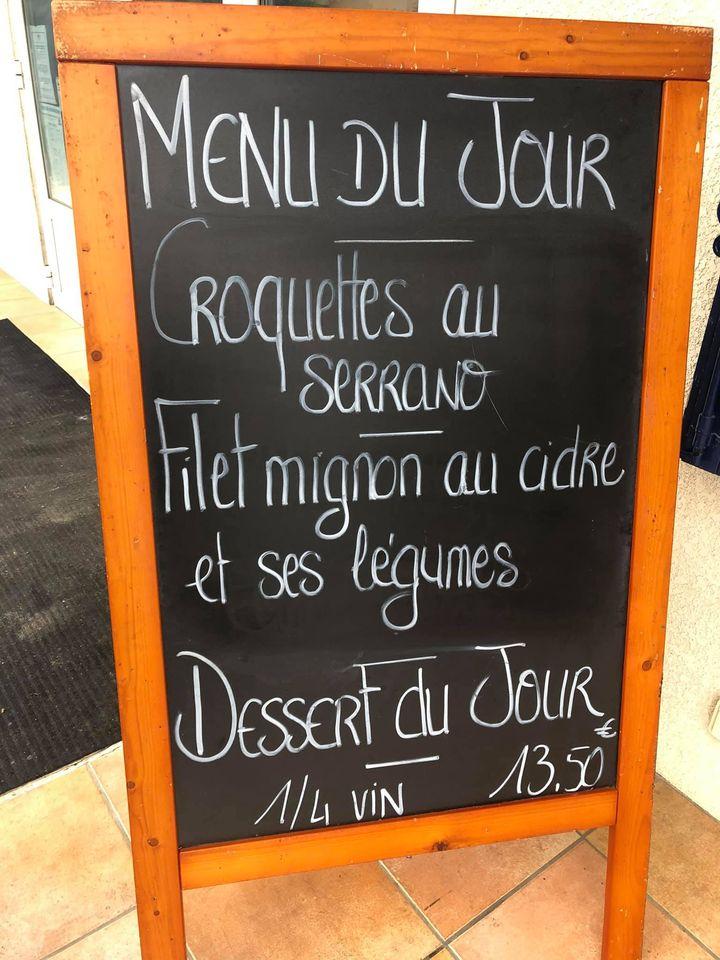 MENU DU JOUR
CROQUETTES AU
SERRANO
Filet mignon au cidre
et ses légumes
DESSERT du JOUR
1/4 VIN 13.50€